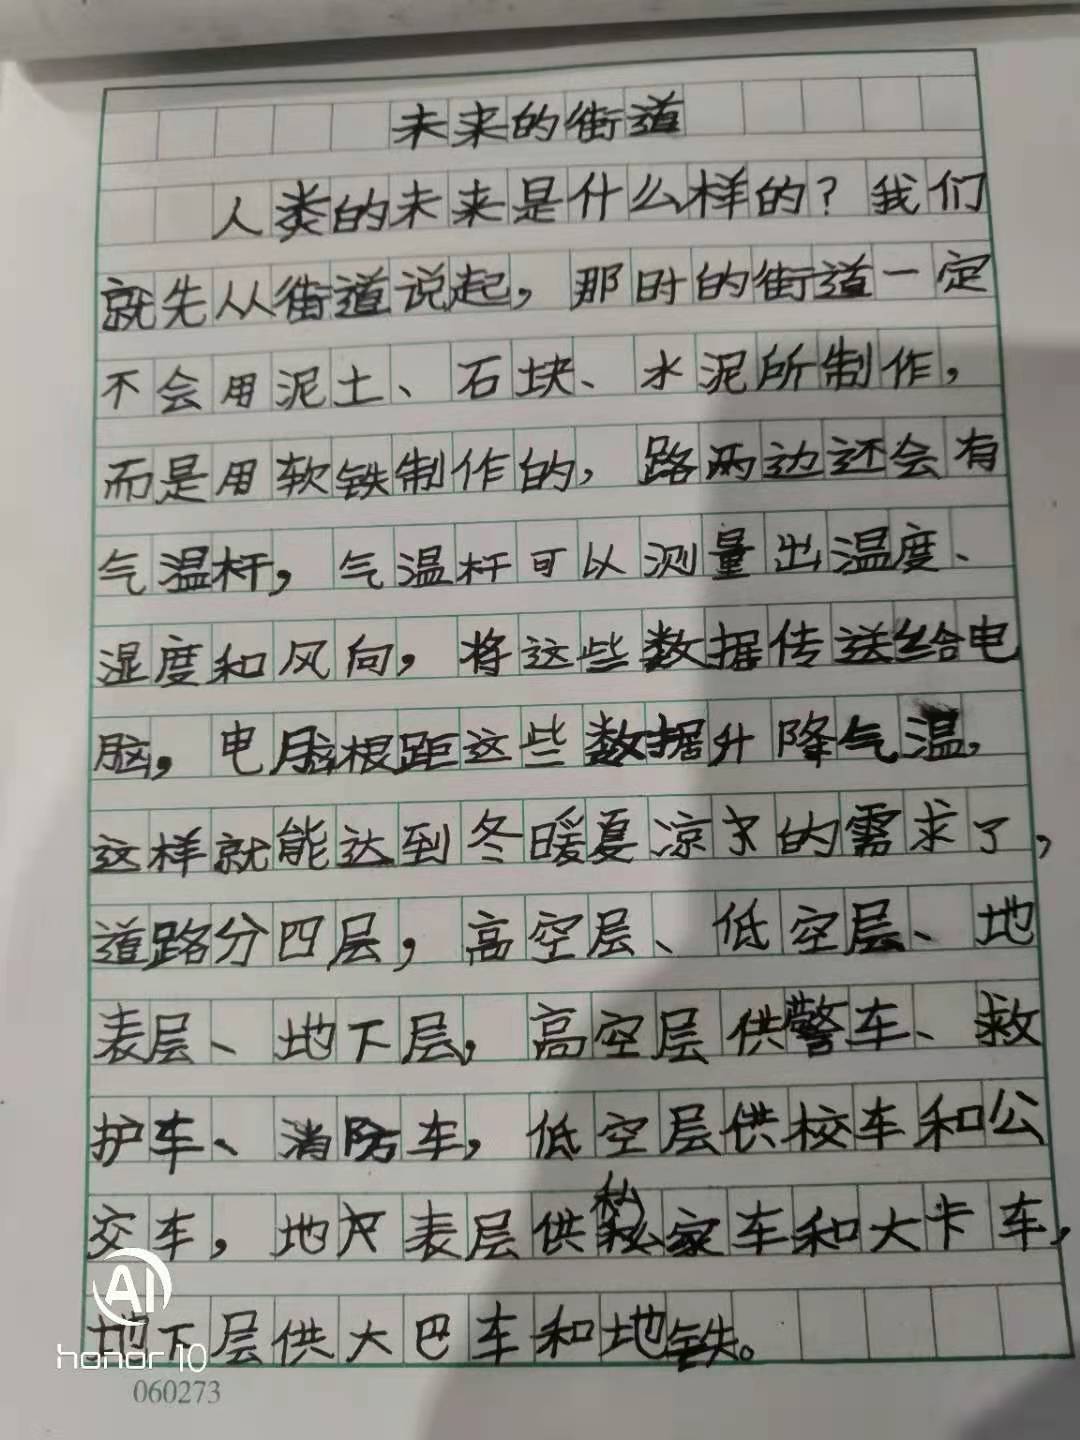 未来的街道
人类的未来是什么样的?我们
就先从街道说起,那时的街道一定
不会用泥土、石块、水泥所制作,
而是用软铁制作的,路两边还会有
气温杆,气温杆可以测量出温度、
湿度和风向,将这些数据传送给电
脑,电脑根距这些数据升降气温,
这样就能达到冬暖夏凉的需求了,
道路分四层,高空层、低空层、地
表层、地下层,高空层供警车、救
护车、消防车,低空层供校车和公
交车,地表层供私家车和大卡车,
地下层供大巴车和地铁。
AI
honor 10
060273